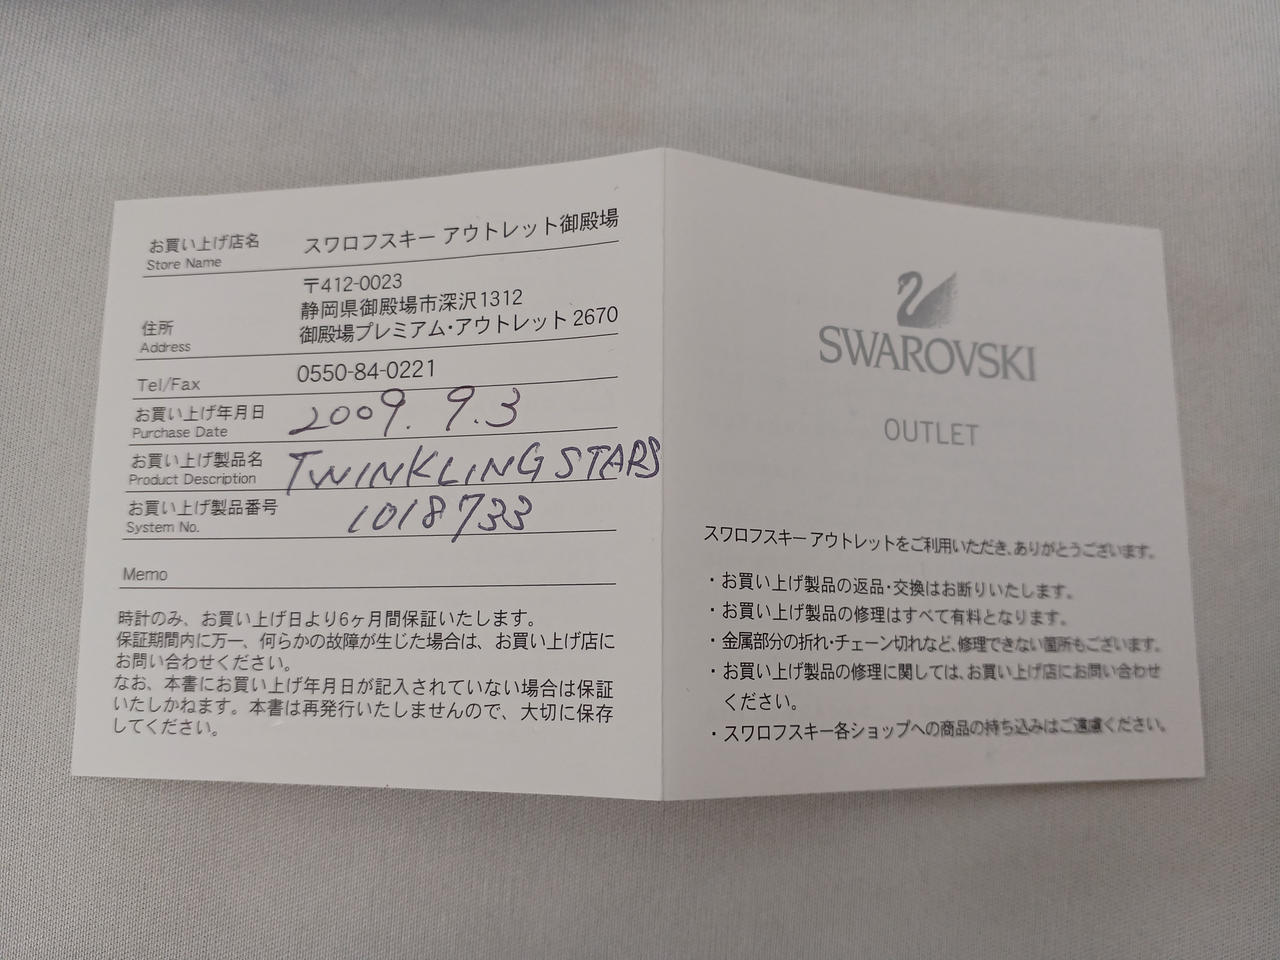 お買い上げ店名 スワロフスキー アウトレット御殿場
Store Name
〒412-0023
静岡県御殿場市深沢1312
住所 御殿場プレミアム・アウトレット 2670
Address
Tel/Fax 0550-84-0221
お買い上げ年月日 2009. 9.3
Purchase Date
お買い上げ製品名 TWINKLING STARS
Product Description
お買い上げ製品番号 1018733
System No.
Memo
時計のみ、お買い上げ日より6ヶ月間保証いたします。
保証期間内に万一、何らかの故障が生じた場合は、お買い上げ店に
お問い合わせください。
なお、本書にお買い上げ年月日が記入されていない場合は保証
いたしかねます。本書は再発行いたしませんので、大切に保存
してください。
SWAROVSKI
OUTLET
スワロフスキー アウトレットをご利用いただき、ありがとうございます。
・お買い上げ製品の返品・交換はお断りいたします。
・お買い上げ製品の修理はすべて有料となります。
・金属部分の折れ・チェーン切れなど、修理できない箇所もございます。
・お買い上げ製品の修理に関しては、お買い上げ店にお問い合わせ
ください。
・スワロフスキー各ショップへの商品の持ち込みはご遠慮ください。